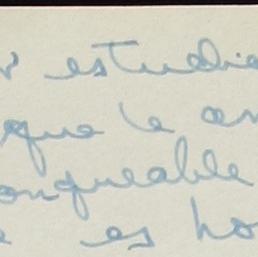 r estudia
que le an
onqueable
es ho